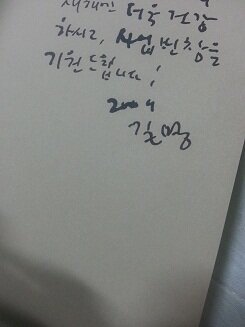 새해엔 더욱 건강
하시고, 사업 번창을
기원드립니다!
2009